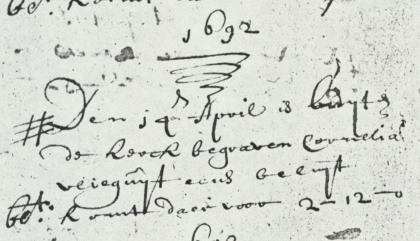 1692
Den 14 April is buyte
de kerck begraven Cornelia
vlieguyt eens beluyt
bet: komt daer voor 2-12-0